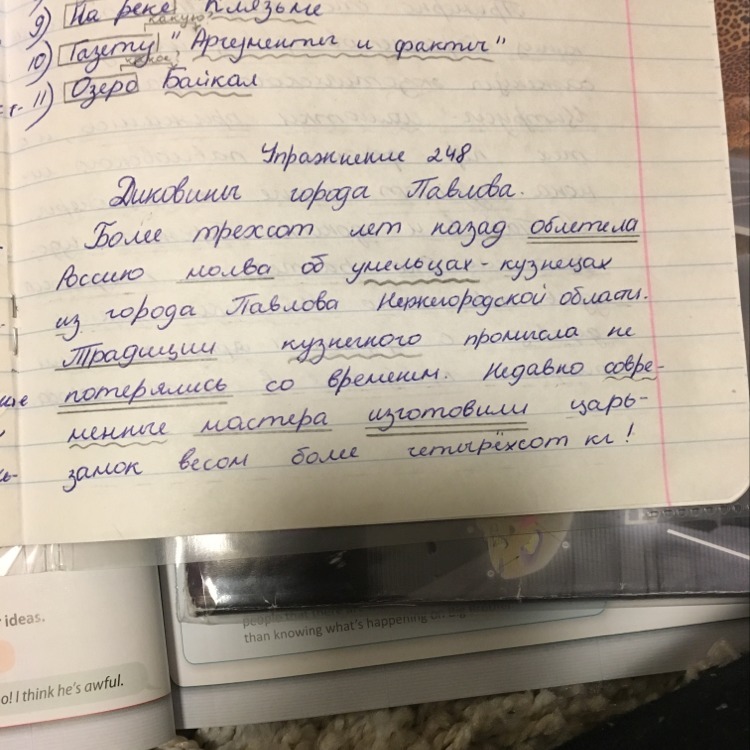 9) На реке Клязьме
какую?
10) Газету "Аргументы и факты"
11) Озеро Байкал
Упражнение 248
Диковины города Павлова.
Более трехсот лет назад облетела
Россию молва об умельцах-кузнецах
из города Павлова Нижегородской области.
Традиции кузнечного промысла не
потерялись со временем. Недавно совре-
менные мастера изготовили царь-
замок весом более четырёхсот кг!
ideas.
o! I think he's awful.
people that there are
than knowing what's happening on